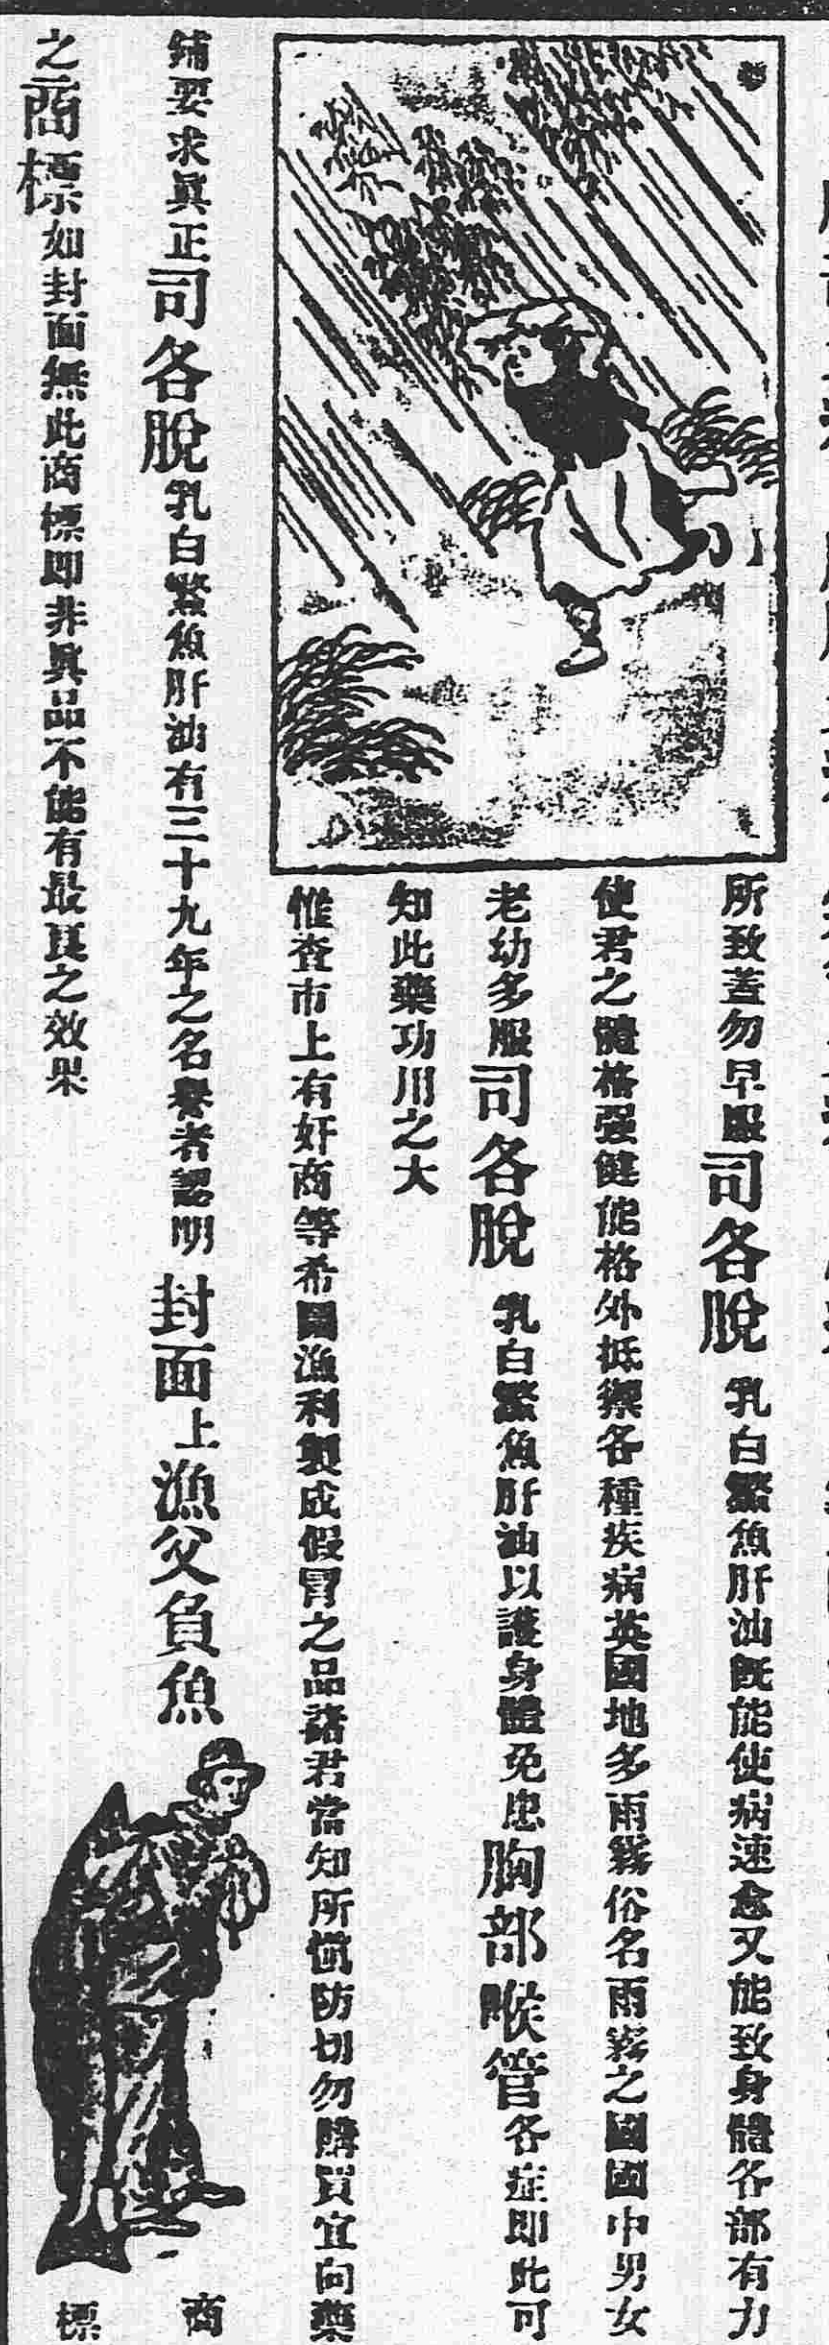 所致蓋勿早服司各脫乳白鰵魚肝油既能使病速愈又能致身體各部有力
使君之體格强健能格外抵禦各種疾病英國地多雨霧俗名雨霧之國國中男女
老幼多服司各脫乳白鰵魚肝油以護身體免患胸部喉管各症即此可
知此藥功用之大
惟查市上有奸商等希圖漁利製成假冒之品諸君當知所慎防切勿購買宜向藥
鋪要求眞正司各脫乳白鰵魚肝油有三十九年之名譽者認明封面上漁父負魚
之商標如封面無此商標即非眞品不能有最良之效果
商標